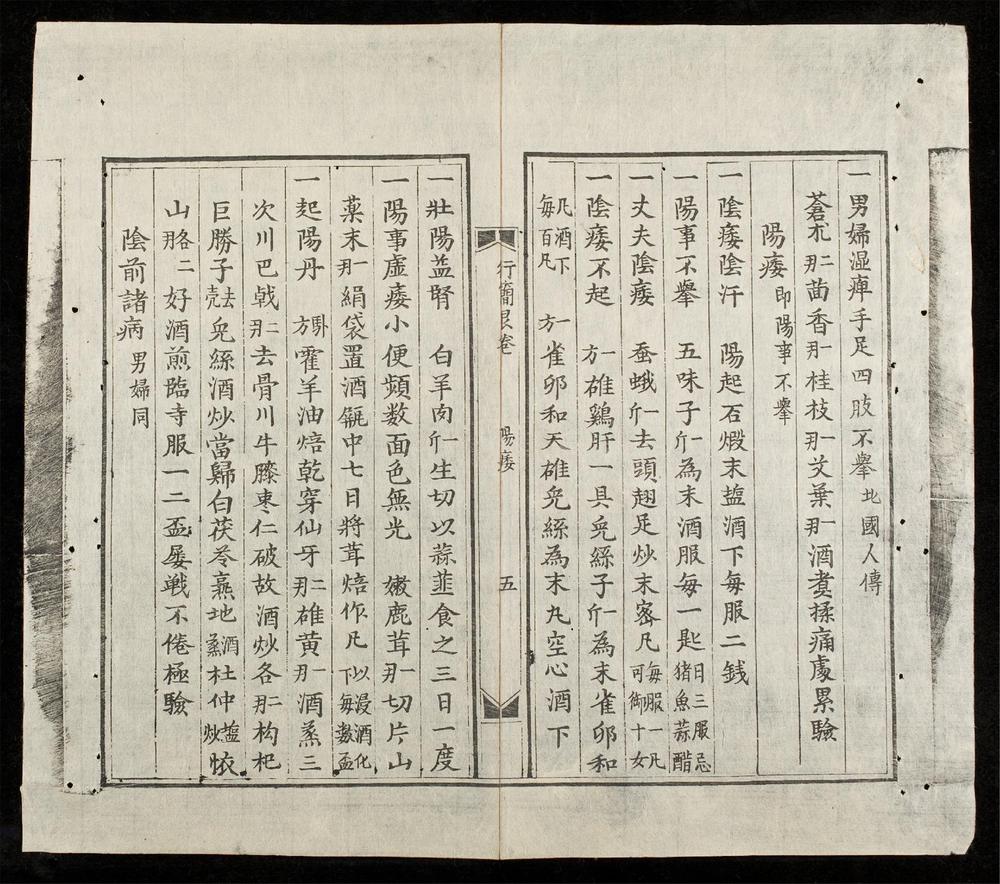 一男婦湿痺手足四肢不擧北國人傳
蒼朮二那茴香一那桂枝一那艾葉一那酒煑揉痛處累驗
陽痿即陽事不擧
一陰痿陰汗 陽起石煅末塩酒下每服二錢
一陽事不擧 五味子一斤為末酒服每一匙日三服忌猪魚蒜醋
一丈夫陰痿 蚕蛾一斤去頭翅足炒末密凡每服一凡可御十女
一陰痿不起 一方雄鷄肝一具兎絲子一斤為末雀卵和
凡酒下每百凡 一方雀卵和天雄兎絲為末丸空心酒下
行簡
陽痿
五
一壯陽益腎 白羊肉一斤生切以蒜韮食之三日一度
一陽事虛痿小便頻数面色無光 嫩鹿茸一那切片山
藥末一那絹袋置酒甁中七日將茸焙作凡以浸酒化下每数盃
一起陽丹 方 霍羊油焙乾穿仙牙二那雄黄一那酒蒸三
次川巴戟二那去骨川牛膝枣仁破故酒炒各二那枸杞
巨勝子去壳兎絲酒炒當歸白茯苓熹地酒蒸杜仲塩炒
山各二那好酒煎臨寺服一二盃屡戦不倦極驗
陰前諸病男婦同